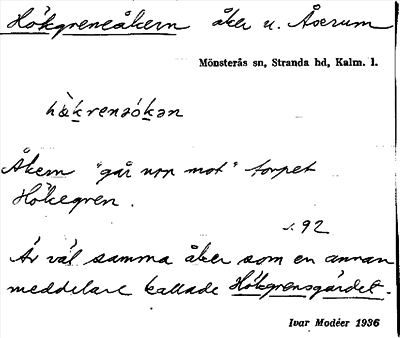 Hökgreneåkern åker u. Åserum
Mönsterås sn, Stranda hd, Kalm. l.
hö̀krenəókən
Åkern "går upp mot" torpet
Hökegren.
s. 92
Är väl samma åker som en annan
meddelare kallade Hökgrensgärdet.
Ivar Modéer 1936